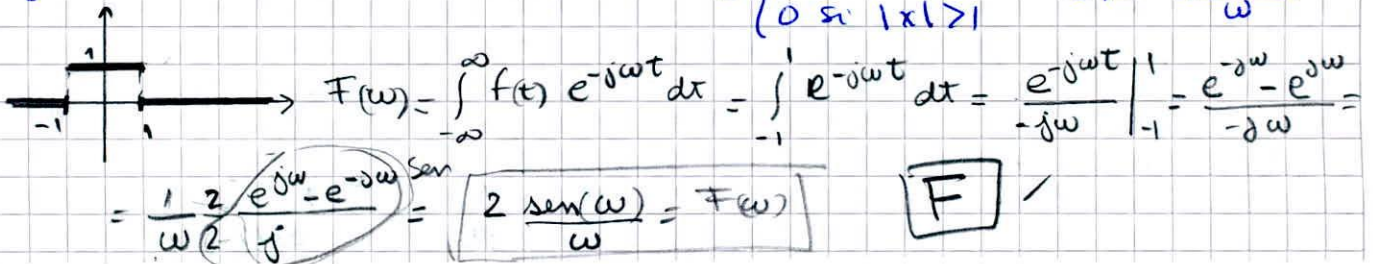 (0 si |x|>1 ω
1
-1 1
F(ω) = ∫_{-∞}^{∞} f(t) e^{-jωt} dt = ∫_{-1}^{1} e^{-jωt} dt = e^{-jωt}/-jω |_{-1}^{1} = e^{-jω} - e^{jω}/-jω =
= 1/ω 2/2 e^{jω} - e^{-jω}/j sen = 2 sen(ω)/ω = F(ω) F